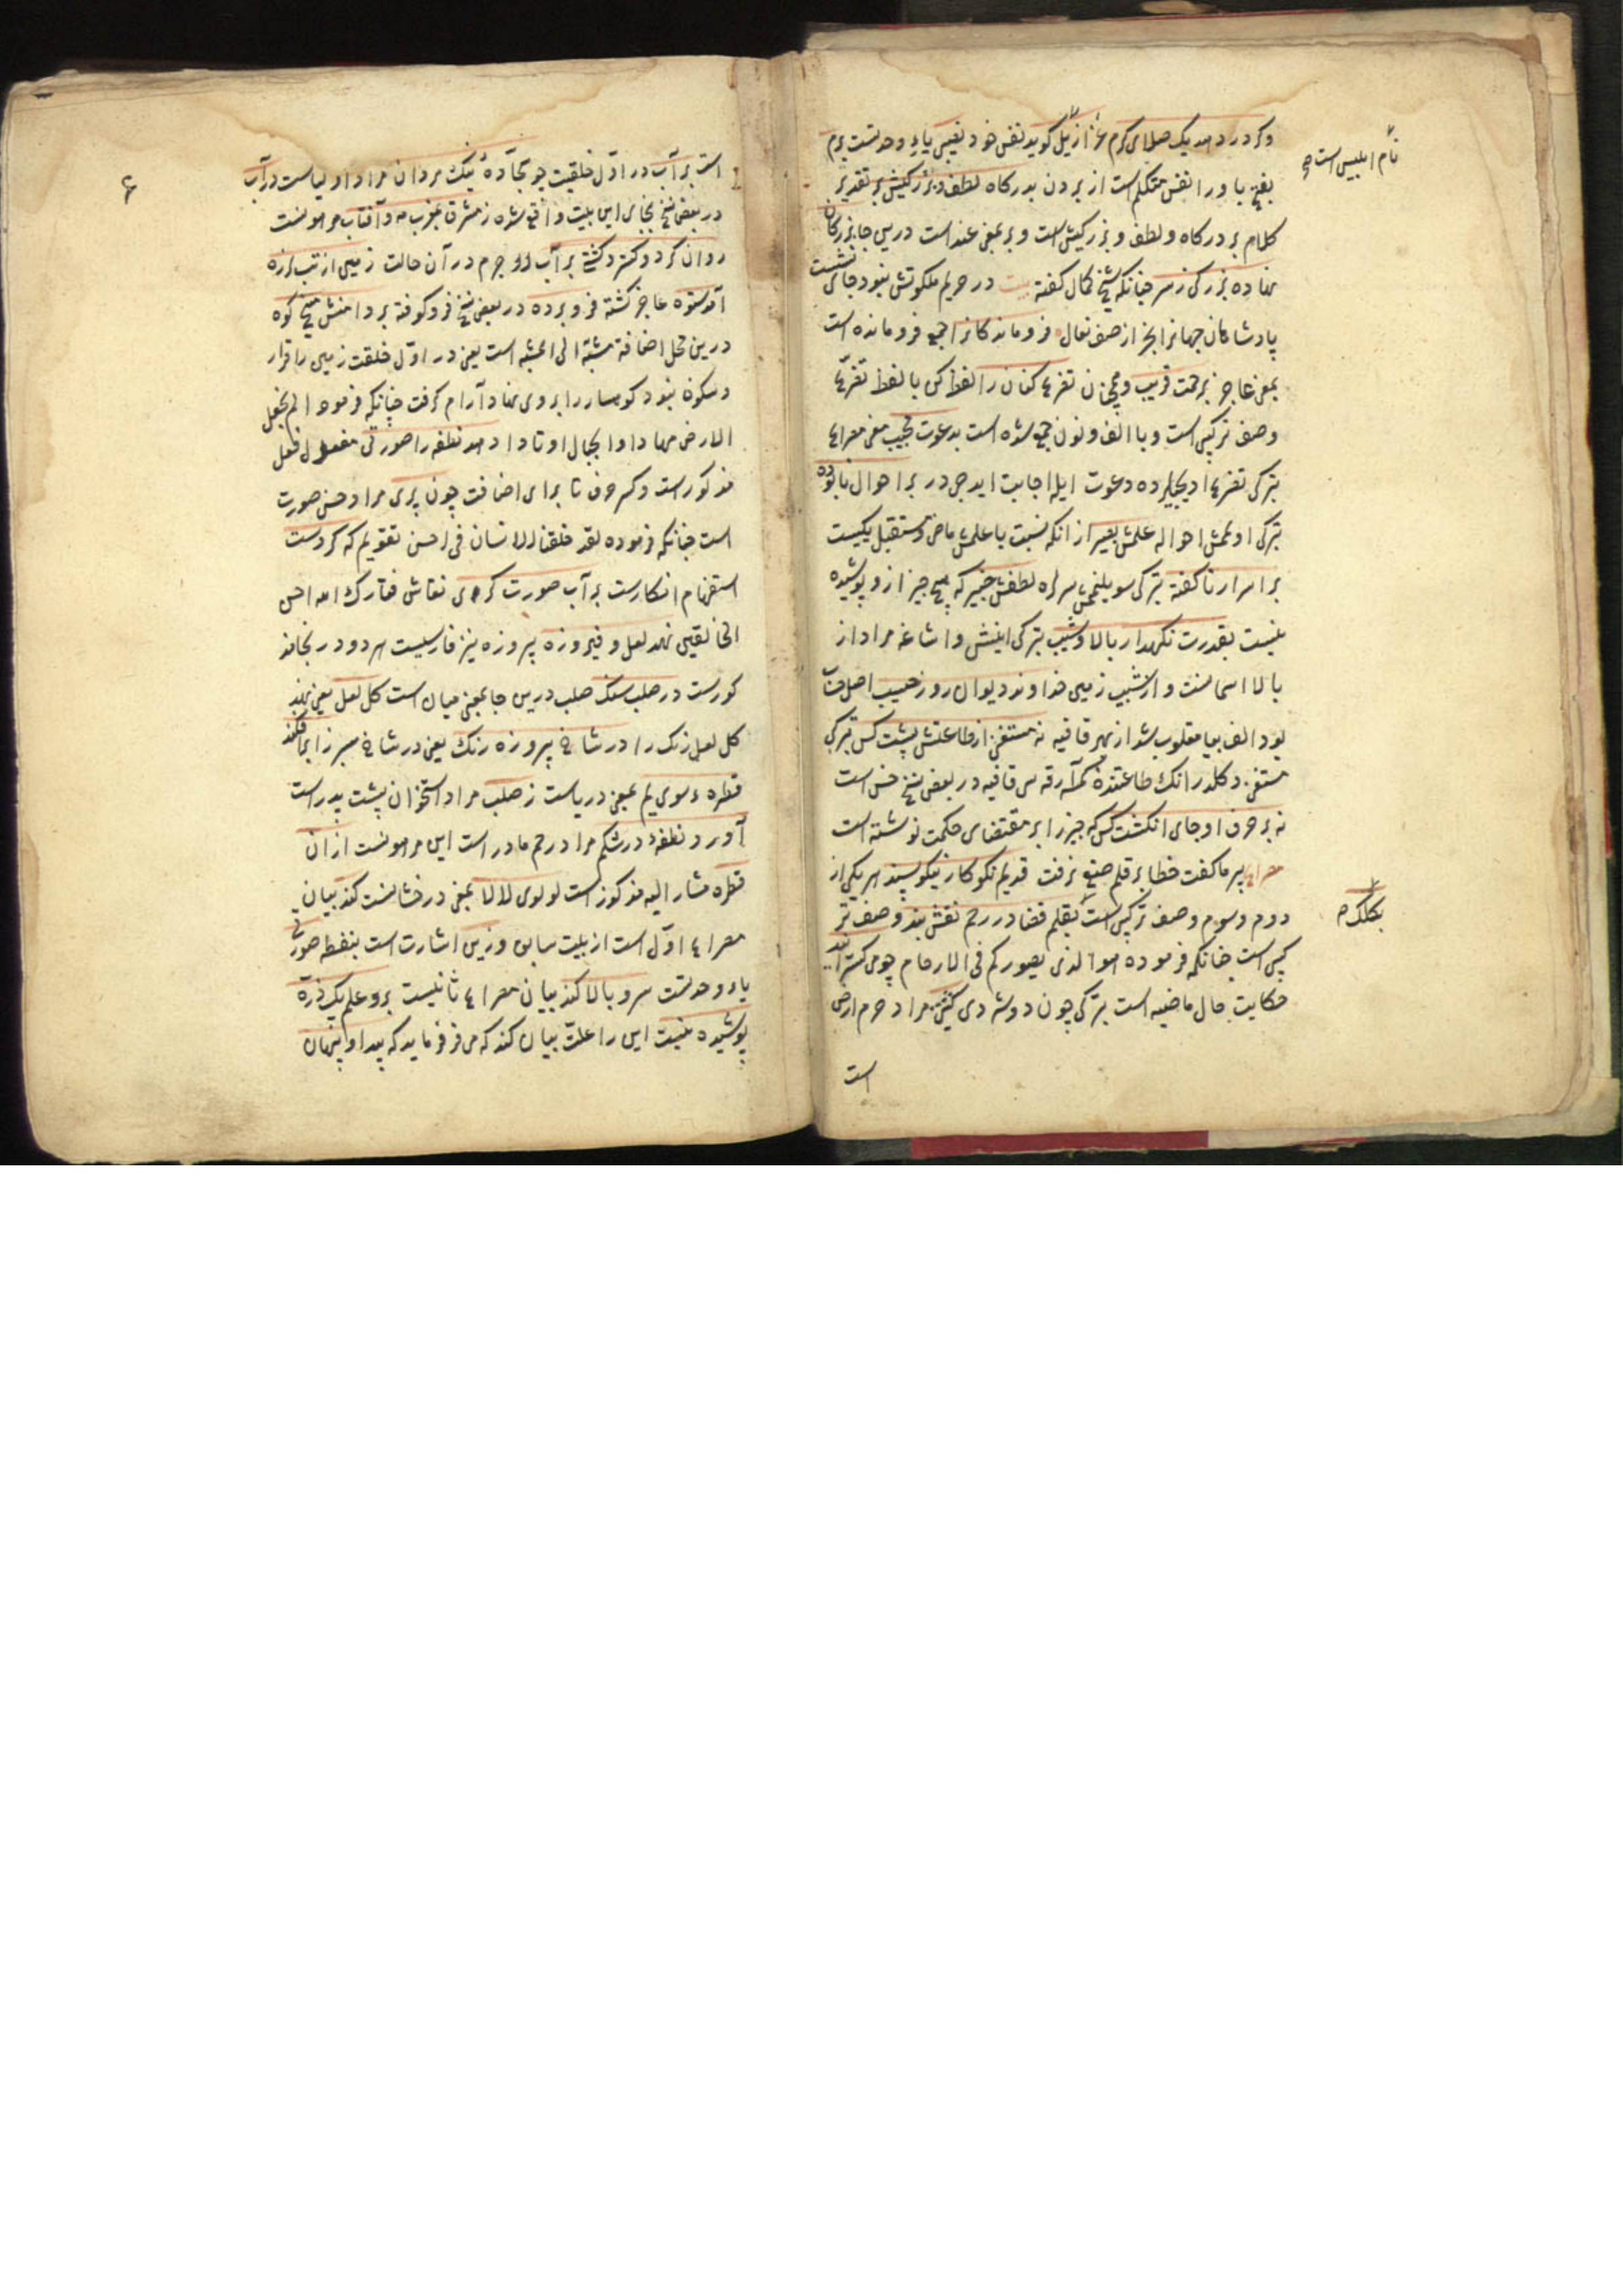 وکر در دهد یک صلای کرم عزازیل کوید نفس خود نصیبی یاء وحدتست برم
نام ابلیس است
بفتح با و را نفس متکلم است از بردن بدرکاه لطف و بزرکیش بر تقدیر
کلام بر درکاه و لطف و بزرکیش است و بر بمعنی عند است درین جا بزرکان
نهاده بزرکی ز سر چنانکه شیخ کمال کفته بیت در حریم ملکوتش نبود جای نشست
پادشاهان جهانرا بجز از صف نعال فرو ماندکانرا جمع فرو مانده است
بمعنی عاجز برحمت قریب و همچنان تضرع کنان را لفظ کن با لفظ تضرع
وصف ترکیبی است و با الف و نون جمع شده است بدعوت مجیب معنی مصراع
ترکی تضرع ایدیجیلرده دعوت ایله اجابت ایدیجیدر بر احوال نابوده
ترکی اولمش احواله علمش بصیر از آنکه نسبت با علمش ماضی و مستقبل یکیست
بر اسرار ناکفته ترکی سویلنممش سرلره لطفش خبیر که هیچ چیز ازو پوشیده
نیست بقدرت نکهدار بالا و شیب ترکی اینش و اشاغه مراد از
بالا آسمانست و از شیب زمین خداوند دیوان روز حسیب اصل حساب
بود الف بیا مقلوب شد از بهر قافیه نه مستغنی از طاعتش پشت کس ترکی
مستغنی دکلدر انک طاعتنده کمسه ارقه سی قافیه در بعضی نسخ خس است
نه بر حرف او جای انکشت کس که چیز را بر مقتضای حکمت نوشته است
مصراع پیر ما کفت خطا بر قلم صنع نرفت قدیم نکوکار نیکو پسند هر یکی از
دوم و سوم وصف ترکیبی است بقلم قضا در رحم نقش بند وصف تر
بکلک
کیبی است چنانکه فرموده هو الذی یصورکم فی الارحام چو می کسترانید
حکایت حال ماضیه است ترکی چون دوشردی کیتی مراد جرم ارض
است
است بر آب در اول خلقیت چو سجاده نیک مردان مراد اولیاست در آب
در بعضی نسخ بجای این بیت واقع شده ز مشرق بمغرب مه و آفتاب مراد هوست
روان کرد و کسترد کیتی بر آب جرم در آن حالت زمین از تب لرزه
آمد ستوه عاجز کشته فرو برده در بعضی نسخ فرو کوفته بر دامنش میخ کوه
درین محل اضافة مشبه الی المشبه است یعنی در اول خلقت زمین را قرار
و سکون نبود کوهسار را بروی نهاد آرام کرفت چنانکه فرمود الم نجعل
الارض مهادا و الجبال اوتادا دهد نطفه را صورتی مفعول فعل
مذکورست و کسر حرف تا برای اضافت چون پری مراد حسن صورت
است چنانکه فرموده لقد خلقنا الانسان فی احسن تقویم که کردست
استفهام انکارست بر آب صورت کری نقاش فتبارک الله احسن
الخالقین نهد لعل و فیروزه پیروزه نیز فارسیست هر دو در بجامد
کورست در صلب سنک صلب درین جا بمعنی میان است کل لعل یعنی نهد
کل لعل رنک را در شاخ پیروزه رنک یعنی در شاخ سبز ز ابر افکند
قطرهء سوی یم بمعنی دریاست ز صلب مراد استخوان پشت پدر است
آورد نطفهء در شکم مراد رحم مادر است این مراد هوست از آن
قطره مشار الیه مذکور است لولوی لالا بمعنی درخشانست کند بیان
مصراع اول است از بیت سابق وزین اشارت است بنطفه صورتی
یاء وحدتست سرو بالا کند بیان مصراع ثانیست برو علم یک ذره
پوشیده نیست این را علت بیان کند که می فرماید که پیدا و پنهان